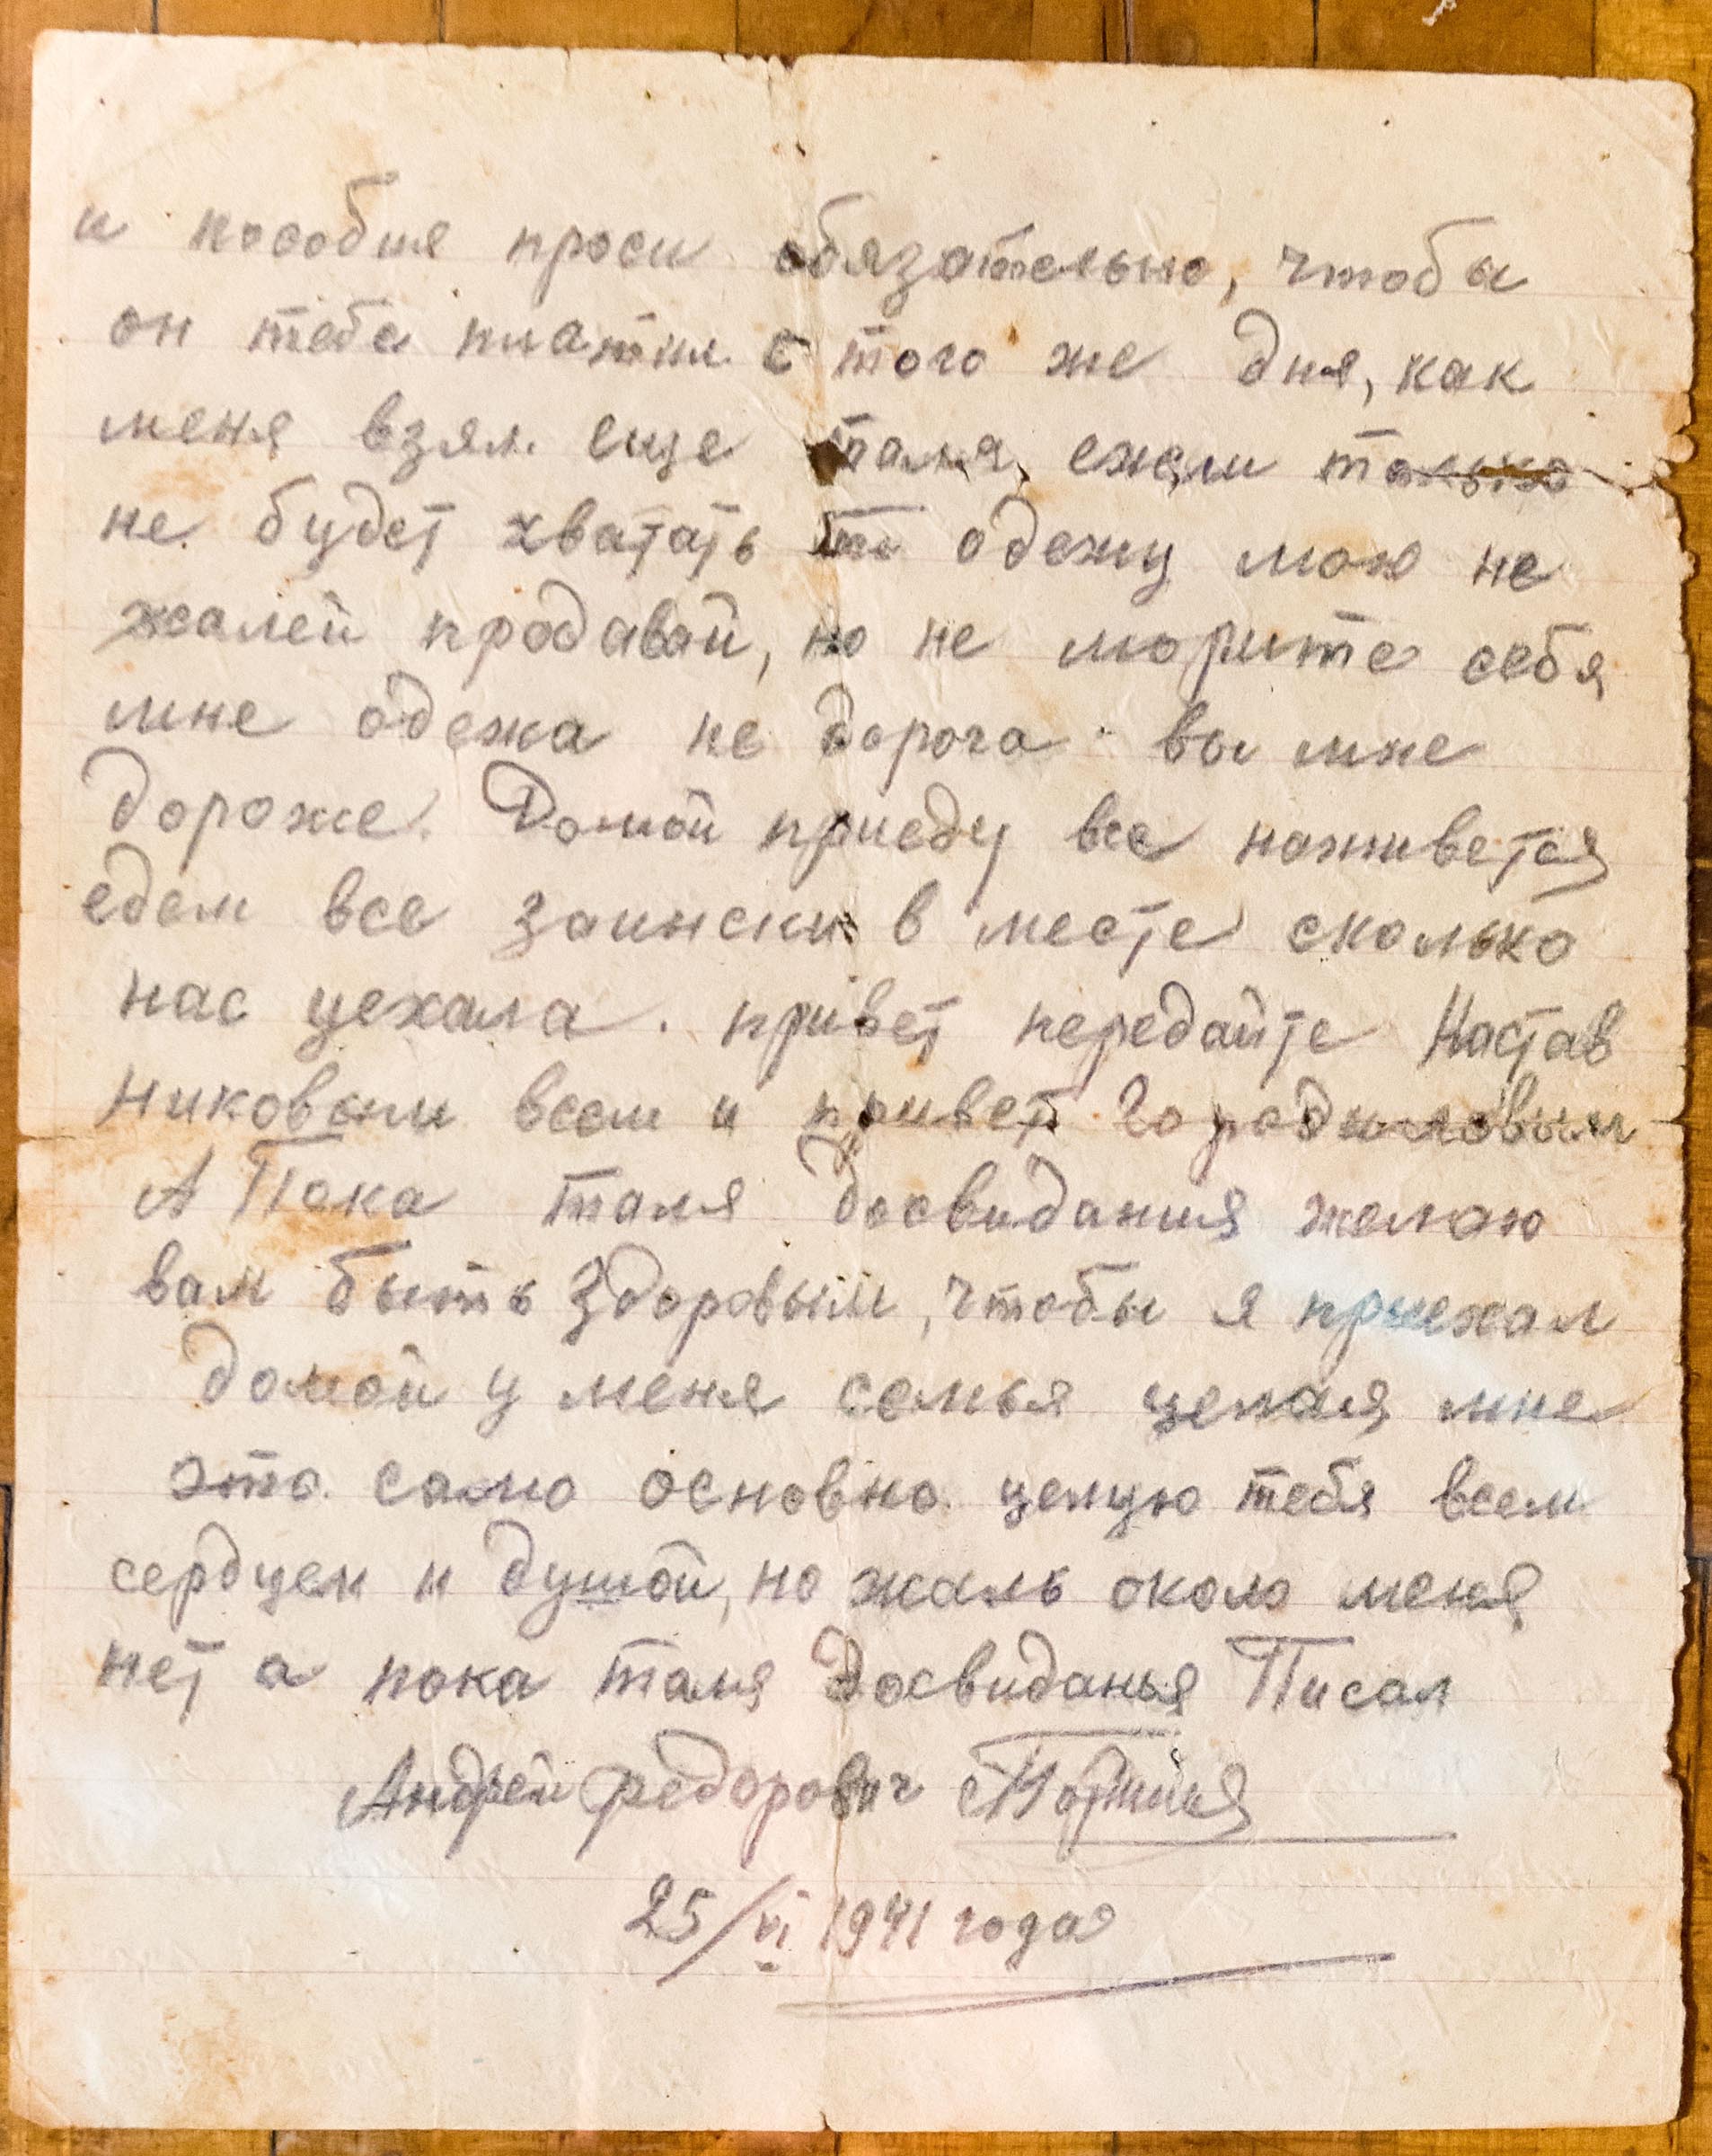 и пособия проси обязательно, чтобы
он тебе платил с того же дня, как
меня взял. еще таля, ежели только
не будет хватать то одежу мою не
жалей продавай, но не морите себя
мне одежа не дорога вы мне
дороже. Домой приеду все наживется
едем все заински в месте сколько
нас уехала. привет передайте Настав
никовым всем и привет Городиловым
А Пока таля досвидания желаю
вам быть здоровым, чтобы я приехал
домой у меня семья целая, мне
это само основно целую тебя всем
сердцем и душой, но жаль около меня
нет а пока таля досвиданья Писал
Андрей Федорович
25/VI 1941 года